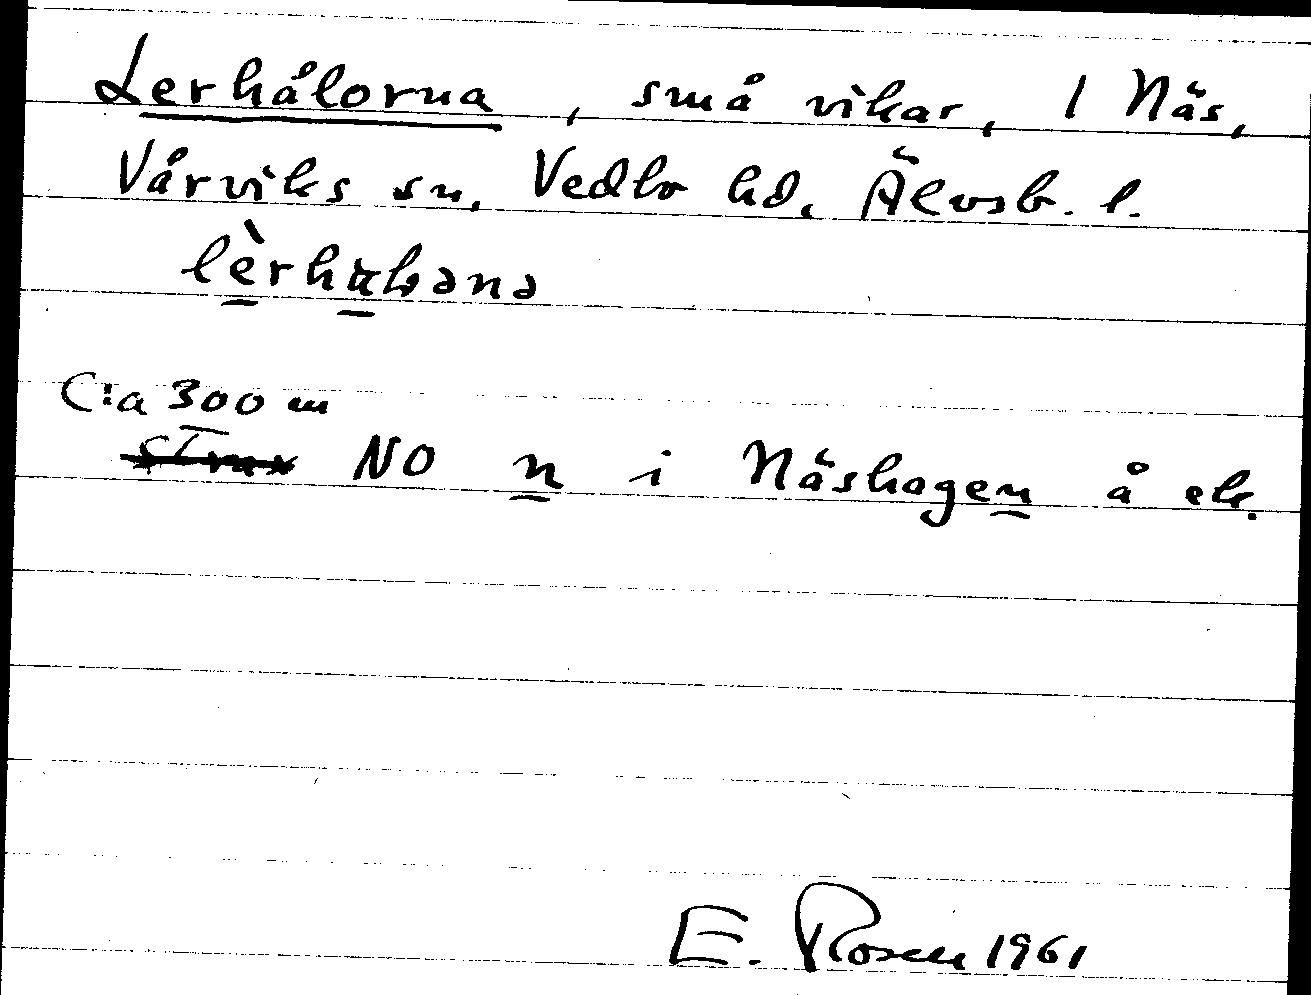 Lerhålorna, små vikar, 1 Näs,
Vårviks sn, Vedbo hd, Älvsb. l.
Ca 300 m
strax NO n i Näshagen å ek.
E. Rosen 1961